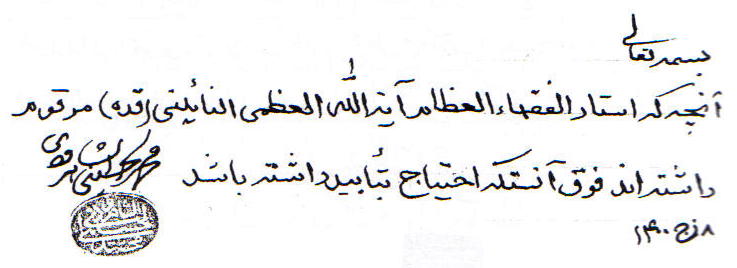 بسمه تعالی
آنچه که استاد الفقهاء العظام آیة الله العظمی النائینی (قده) مرقوم
داشته اند فوق آنستکه احتیاج بتأیید داشته باشد